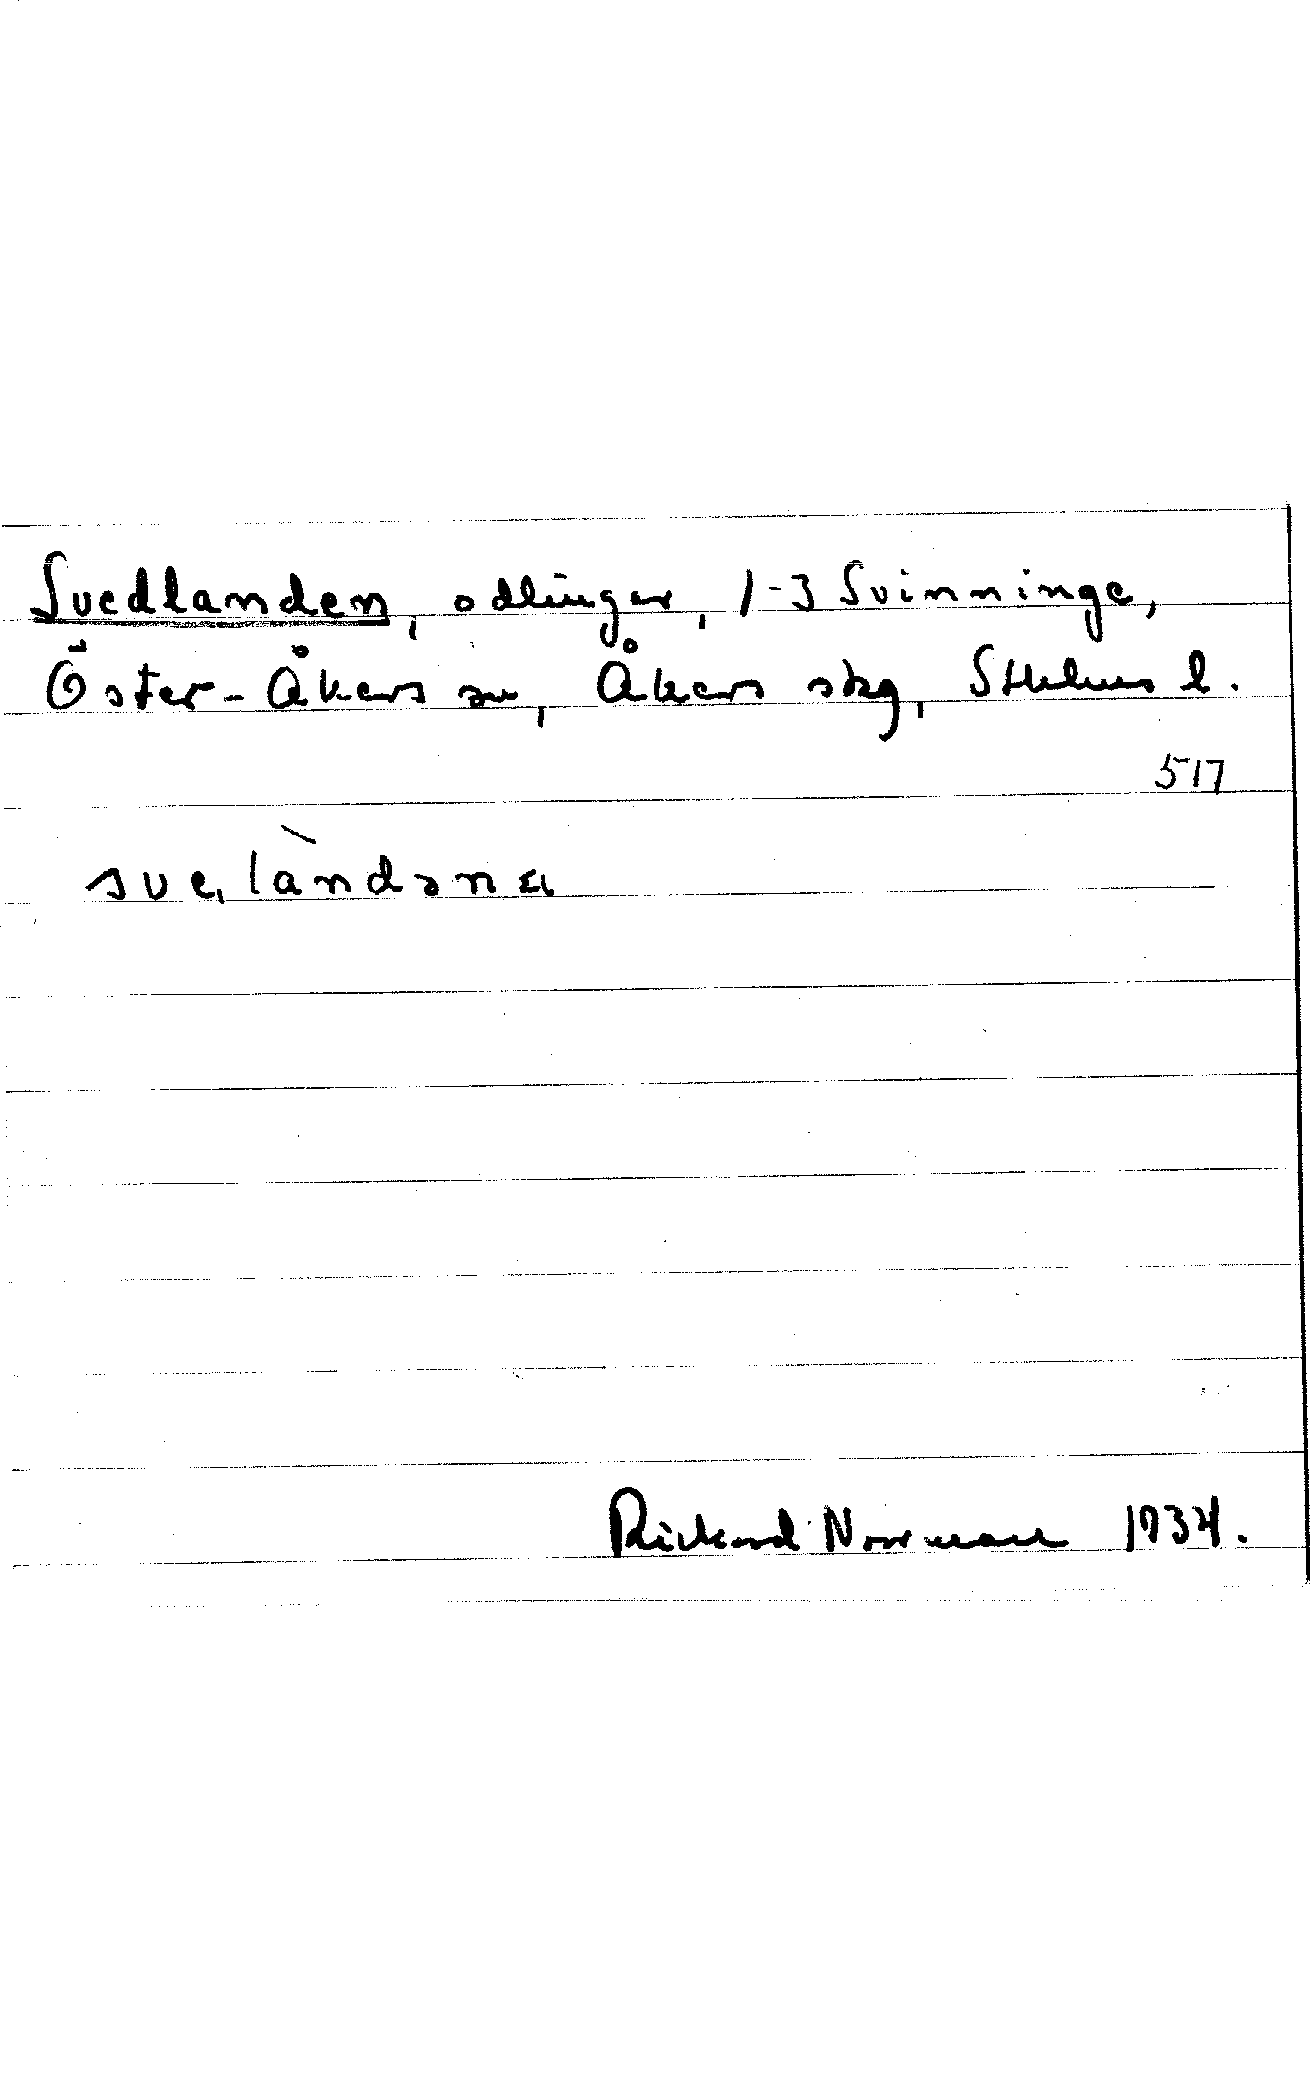 Svedlanden, odlingar, 1-3 Svinninge,
Öster-Åkers sn, Åkers skg, Sthlms l.
517
sve̩làndəna
Rickard Norman 1934.